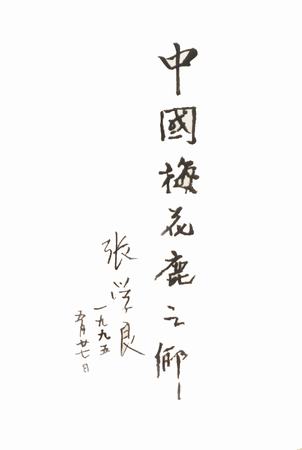 中國梅花鹿之鄉
張学良
一九九五
五月廿七日